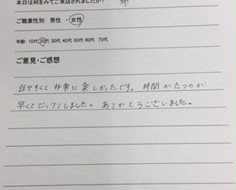 本日は何をみてご来店されましたか?
ご職業性別 男性・女性
年齢: 10代 20代 30代 40代 50代 60代 70代
ご意見・ご感想
話やすくて 非常に楽しかったです。時間がたつのが
早くてビックリしました。ありがとうございました。